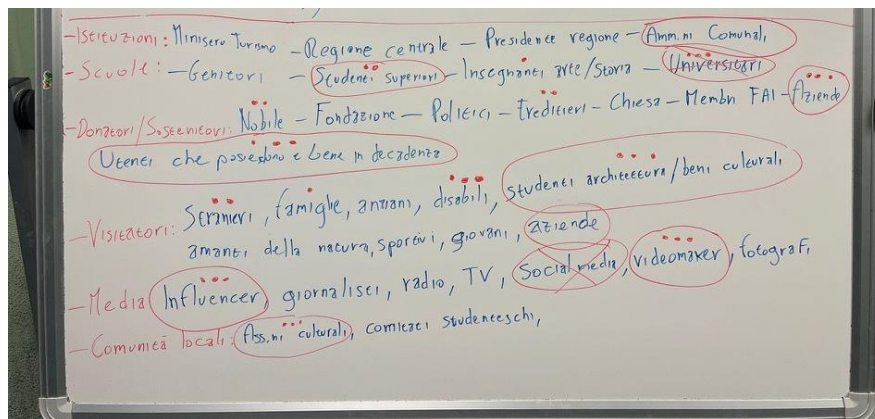 - Istituzioni: Ministero Turismo - Regione centrale - Presidente regione - Amm.ni Comunali
- Scuole: - Genitori - Studenti superiori - Insegnanti arte/Storia - Universitari
- Donatori/Sostenitori: Nobile - Fondazione - Politici - Ereditieri - Chiesa - Membri FAI - Aziende
Utenti che posiedono e bene in decadenza
- Visitatori: Stranieri, famiglie, anziani, disabili, studenti architettura/beni culturali
amanti della natura, sportivi, giovani, aziende
- Media Influencer, giornalisti, radio, TV, Social media, videomaker, fotografi
- Comunità locali: Ass.ni culturali, comitati studenteschi,